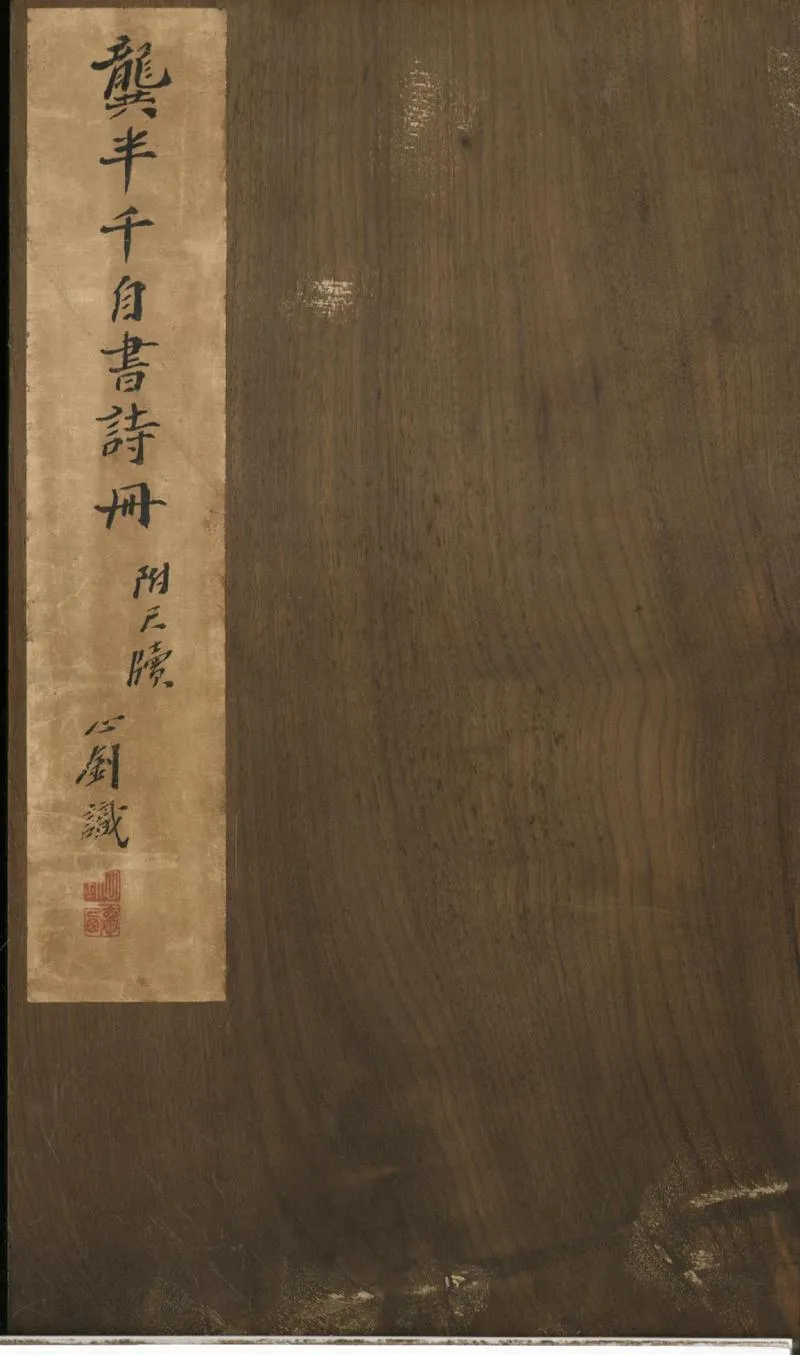 龔半千自書詩冊
附尺牘
心釗識